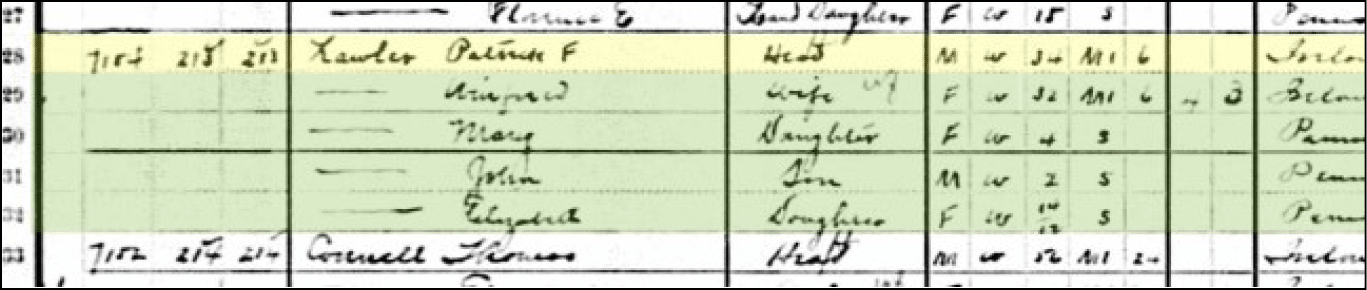 27 —— Florence E Grand Daughter F W 18 S Penns
28 7154 213 213 Lawler Patrick F Head M W 34 M1 6 Irelan
29 —— Winifred Wife F W 32 M1 6 4 3 Irelan
30 —— Mary Daughter F W 4 S Penns
31 —— John Son M W 2 S Penns
32 —— Elizabeth Daughter F W 10/12 S Penns
33 7152 214 214 Connell Thomas Head M W 52 M1 24 Irelan